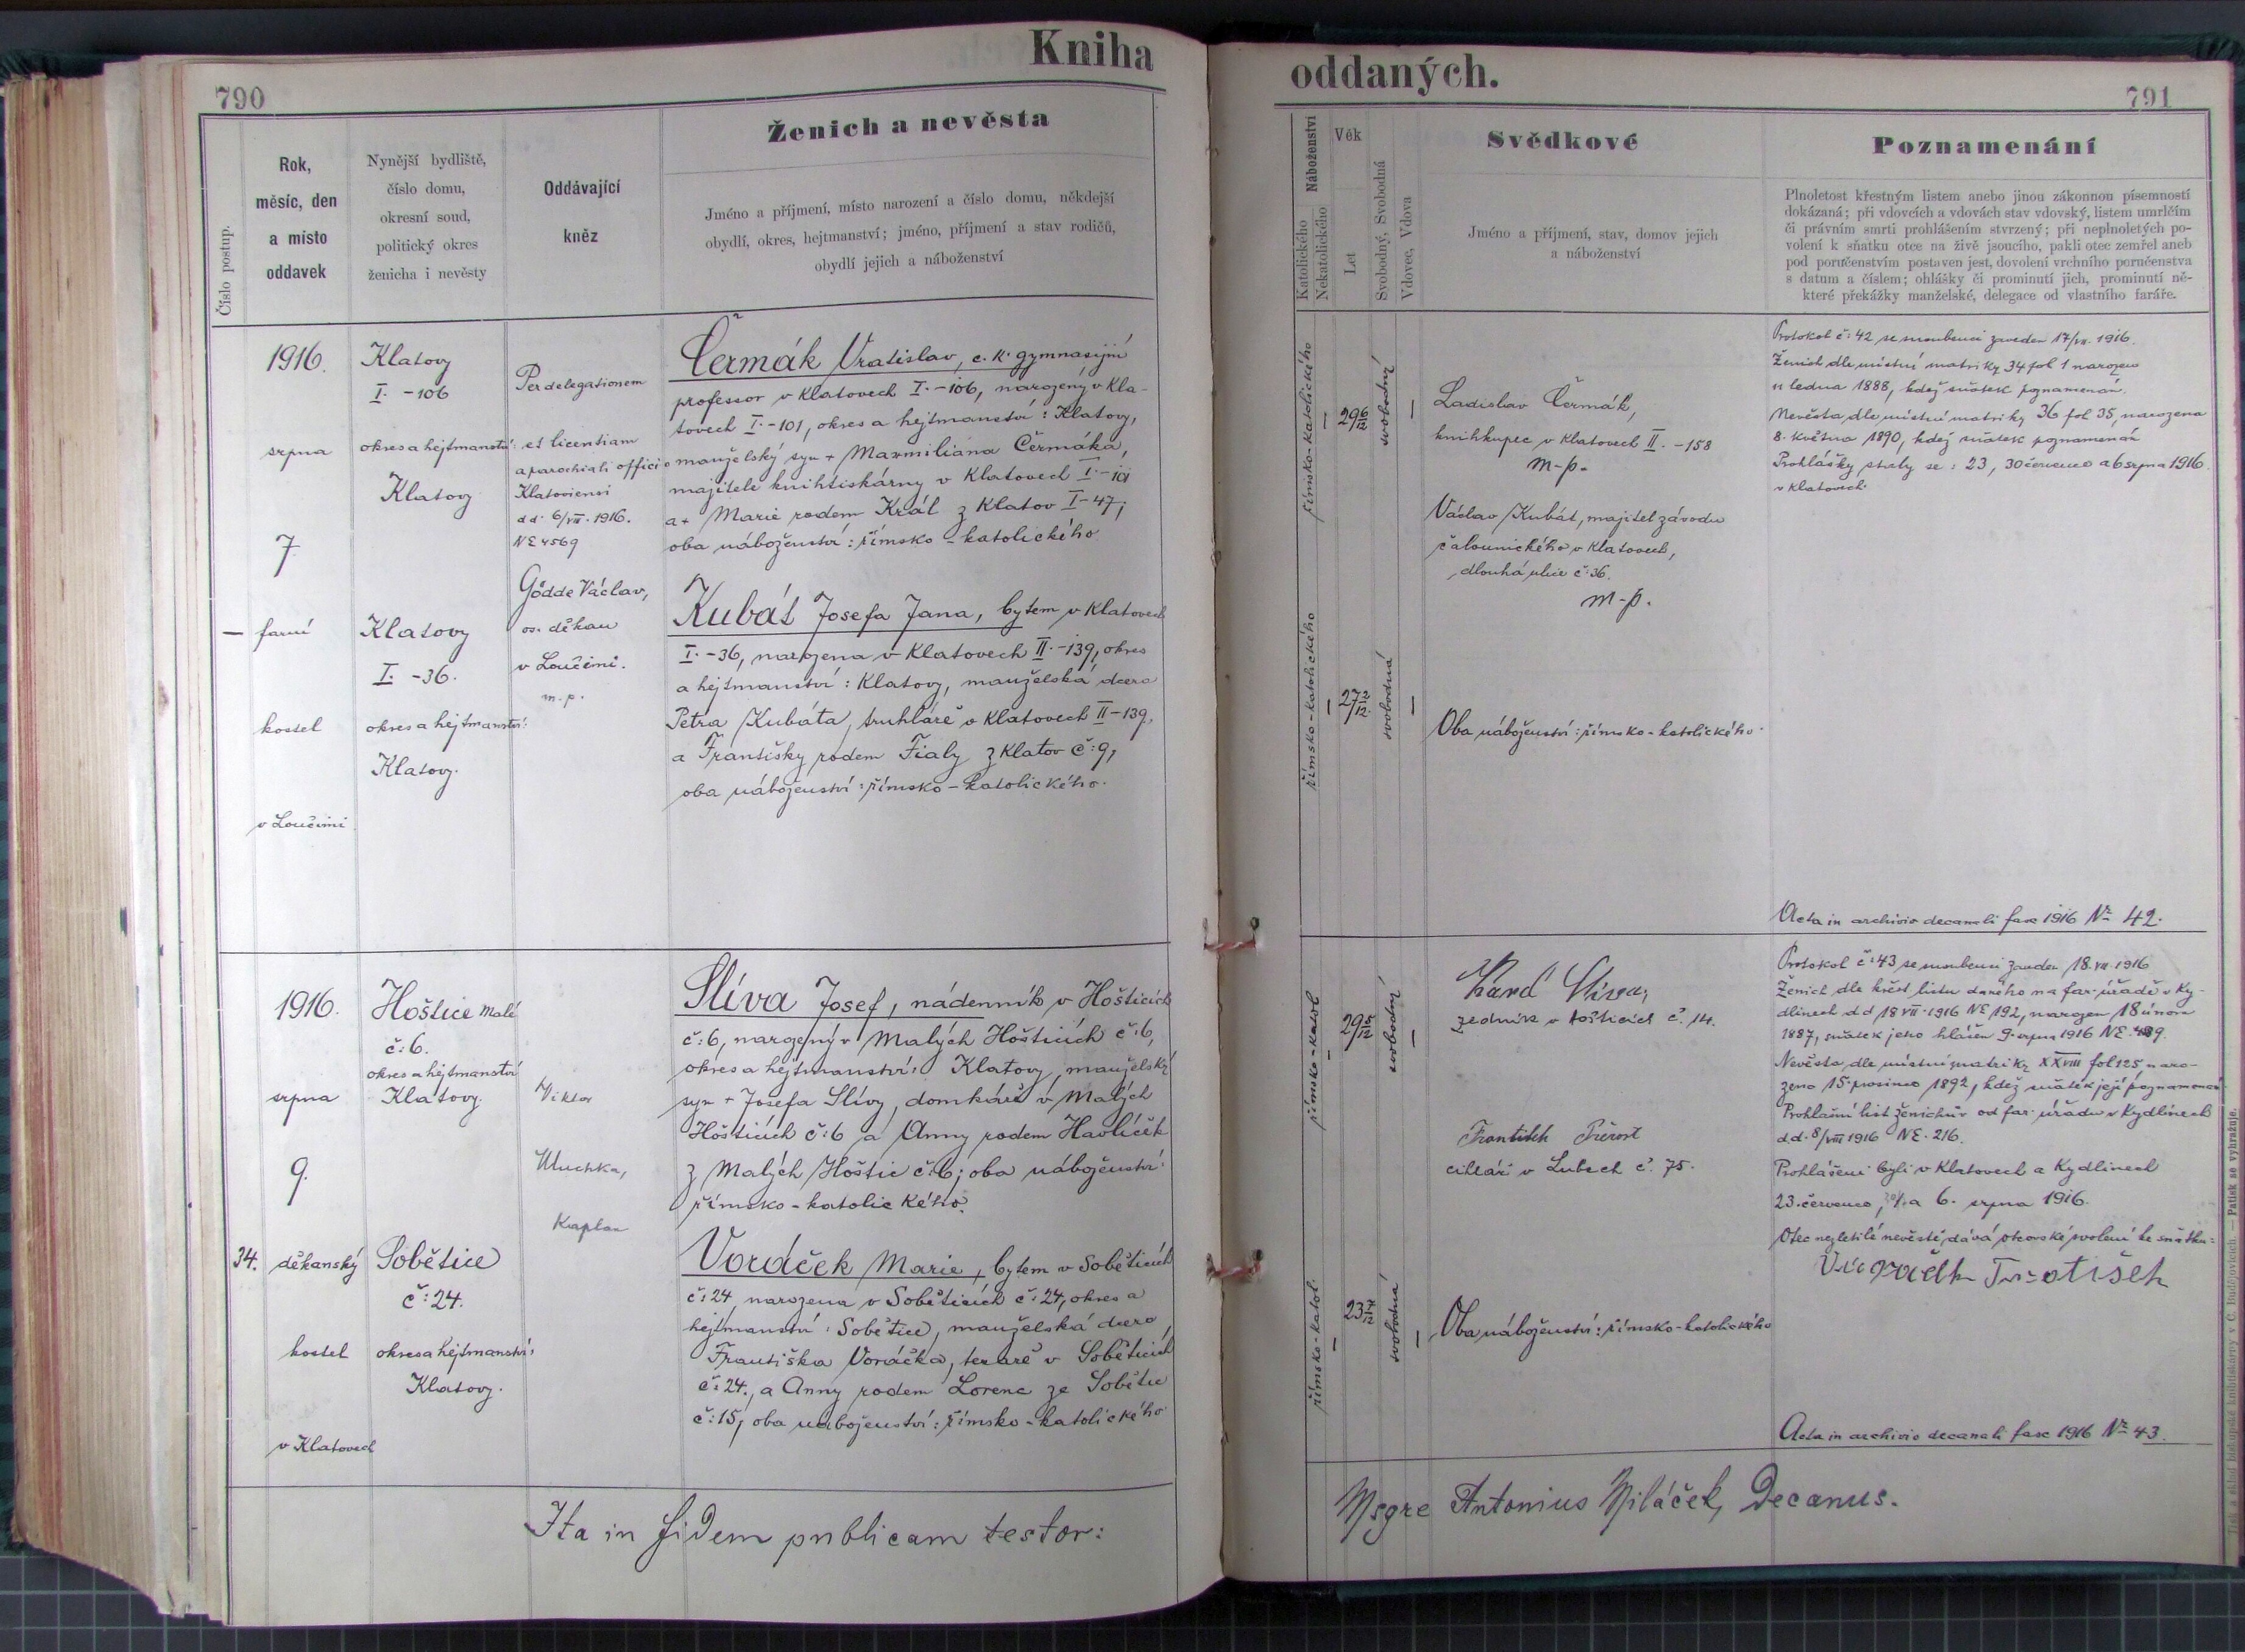 Kniha
oddaných.
790
791
Číslo postup.
Rok,
měsíc, den
a místo
oddavek
Nynější bydliště,
číslo domu,
okresní soud,
politický okres
ženicha i nevěsty
Oddávající
kněz
Ženich a nevěsta
Jméno a příjmení, místo narození a číslo domu, někdejší
obydlí, okres, hejtmanství; jméno, příjmení a stav rodičů,
obydlí jejich a náboženství
Náboženství
Katolického
Nekatolického
Věk
Let
Svobodný, Svobodná
Vdovec, Vdova
Svědkové
Jméno a příjmení, stav, domov jejich
a náboženství
Poznamenání
Plnoletost křestným listem anebo jinou zákonnou písemností
dokázaná; při vdovcích a vdovách stav vdovský, listem umrlčím
či právním smrti prohlášením stvrzený; při neplnoletých po-
volení k sňatku otce na živě jsoucího, pakli otec zemřel aneb
pod poručenstvím postaven jest, dovolení vrchního poručenstva
s datum a číslem; ohlášky či prominutí jich, prominutí ně-
které překážky manželské, delegace od vlastního faráře.
1916.
srpna
7
— farní
kostel
v Loučimi
Klatovy
I. - 106
okres a hejtmanství:
Klatovy
Klatovy
I. - 36.
okres a hejtmanství:
Klatovy.
Per delegationem
et licentiam
a parochiali officio
Klatoviensi
dd. 6/VIII. 1916.
NE 4569
Gödde Václav,
os. děkan
v Loučimi.
m. p.
Čermák Vratislav, c. k. gymnasijní
professor v Klatovech I. - 106, narozený v Kla-
tovech I. - 101, okres a hejtmanství: Klatovy,
manželský syn + Maxmiliána Čermáka,
majitele knihtiskárny v Klatovech I - 101
a + Marie rodem Král z Klatov I - 47;
oba náboženství: římsko-katolického
Kubát Josefa Jana, bytem v Klatovech
I. - 36, narozena v Klatovech II. - 139, okres
a hejtmanství: Klatovy, manželská dcera
Petra Kubáta, truhláře v Klatovech II - 139,
a Františky rodem Fialy z Klatov č: 9,
oba náboženství: římsko-katolického.
římsko-katolického
29 6/12
svobodný
římsko-katolického
27 2/12
svobodná
Ladislav Čermák,
knihkupec v Klatovech II. - 158
m-p.
Václav Kubát, majitel závodu
čalounického v Klatovech,
dlouhá ulice č: 36.
m-p.
Oba náboženství: římsko-katolického.
Protokol č: 42 se snoubenci zaveden 17/VII. 1916.
Ženich dle místní matriky 34 fol 1 narozen
11 ledna 1888, kdež sňatek poznamenán.
Nevěsta dle místní matriky 36 fol 35, narozena
8. května 1890, kdež sňatek poznamenán
Prohlášky staly se: 23, 30 července a 6 srpna 1916.
v Klatovech.
Acta in archivio decanali fasc 1916 Nr 42.
1916.
srpna
9.
34. děkanský
kostel
v Klatovech
Hoštice Malé
č: 6.
okres a hejtmanství
Klatovy.
Sobětice
č: 24.
okres a hejtmanství:
Klatovy.
Viktor
Kaplan
Slíva Josef, nádenník v Hošticích
č: 6, narozený v Malých Hošticích č: 6,
okres a hejtmanství: Klatovy, manželský
syn + Josefa Slívy, domkáře v Malých
Hošticích č: 6 a Anny rodem Havlíček
z Malých Hoštic č: 6; oba náboženství:
římsko-katolického.
Voráček Marie, bytem v Soběticích
č: 24, narozena v Soběticích č: 24, okres a
hejtmanství: Sobětice, manželská dcera
Františka Voráčka, tesaře v Soběticích
č: 24., a Anny rodem Lorenc ze Sobětic
č: 15; oba náboženství: římsko-katolického.
římsko-katol
svobodný
římsko-katol.
svobodná
Karel Slíva,
zedník v Hošticích č. 14.
František
cihlář v Lubech č. 75.
Oba náboženství: římsko-katolického
Protokol č: 43 se snoubenci zaveden 18. VII. 1916
Ženich dle křest listu daného na far. úřadě v Ky-
dlinech dd 18 VII. 1916 NE 192, narozen 18 února
1887, sňatek jeho hlášen 9. srpna 1916 NE. 489.
Nevěsta dle místní matriky XXVIII fol 125, naro-
zena 15. prosince 1892, kdež sňatek její poznamenán.
Prohlašní list ženichův od far. úřadu v Kydlinech
d.d. 8/VIII 1916 NE. 216.
Prohlášeni byli v Klatovech a Kydlinech
23. července, 30/7 a 6. srpna 1916.
Otec nezletilé nevěstě dává otcovské svolení ke sňatku:
Acta in archivio decanali fasc 1916 Nr 43.
Ita in fidem publicam testor:
Msgre Antonius Miláček, Decanus.
Tisk a sklad biskupské knihtiskárny v Č. Budějovicích. — Patisk se vyhražuje.